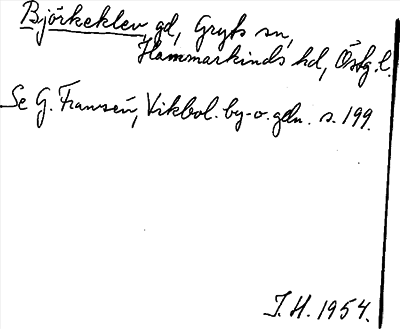 Björkeklev gd, Gryts sn,
Hammarkinds hd, Östg. l.
Se G. Franzén, Vikbol. by- o. gdn. s. 199.
J. H. 1954.